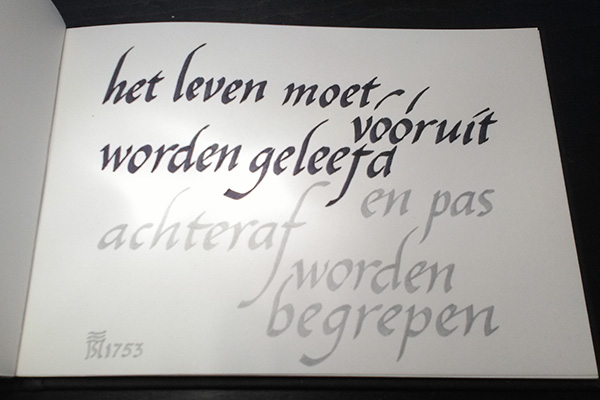 het leven moet
vóóruit
worden geleefd
en pas
achteraf
worden
begrepen
1753